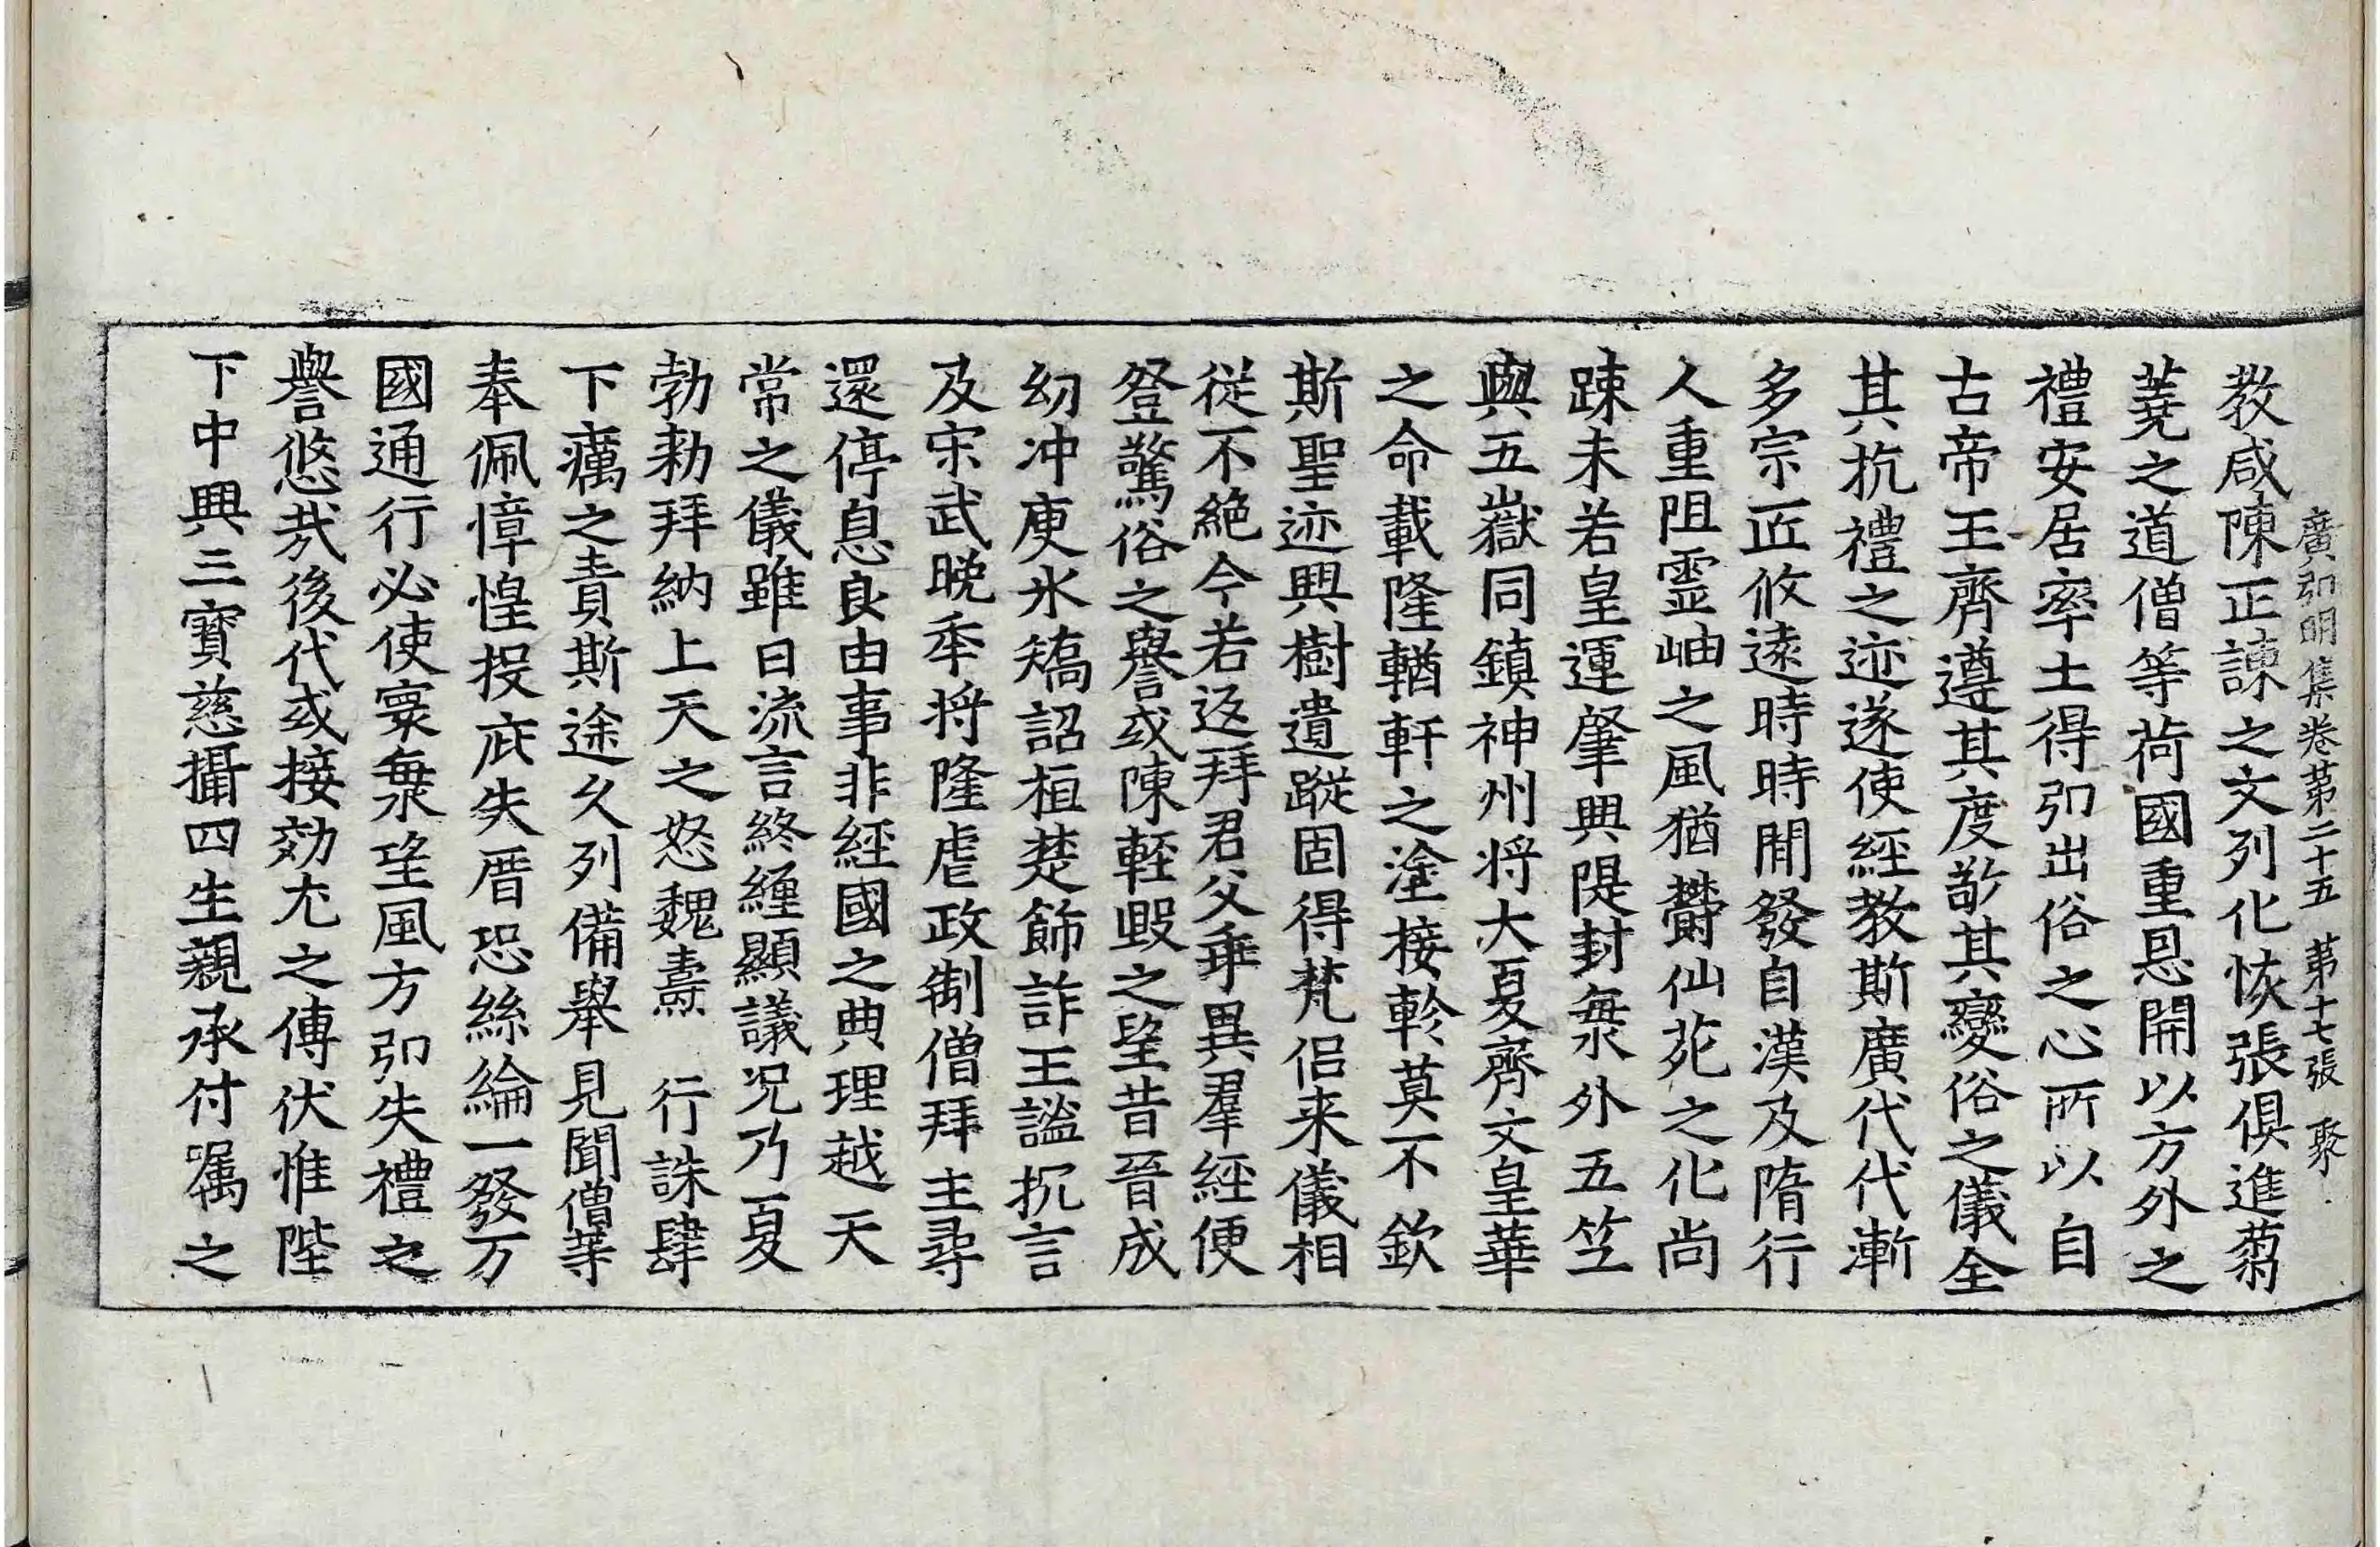 廣弘明集卷第二十五 第十七張 聚
教咸陳正諫之文列化恢張俱進蒭
蕘之道僧等荷國重恩開以方外之
禮安居率土得弘出俗之心所以自
古帝王齊遵其度敬其變俗之儀全
其抗禮之迹遂使經教斯廣代代漸
多宗匠攸遠時時間發自漢及隋行
人重阻霊岫之風猶欝仙苑之化尚
踈未若皇運肇興隄封海外五竺
與五嶽同鎮神州将大夏齊文皇華
之命載隆輶軒之塗接軫莫不欽
斯聖迹興樹遺蹤固得梵侶来儀相
従不絶今若返拜君父乖異羣經便
登驚俗之譽或陳輕毀之望昔晉成
幼冲庾氷矯詔桓楚飾詐王謐抗言
及宋武晚年将隆虐政制僧拜主尋
還停息良由事非經國之典理越天
常之儀雖曰流言終纏顯議况乃夏
勃勑拜納上天之怒魏燾 行誅肆
下癘之責斯途久列備舉見聞僧等
奉佩慞惶投庇失厝恐絲綸一發万
國通行必使寰海望風方弘失禮之
譽悠哉後代或接効尤之傳伏惟陛
下中興三寶慈攝四生親承付嘱之